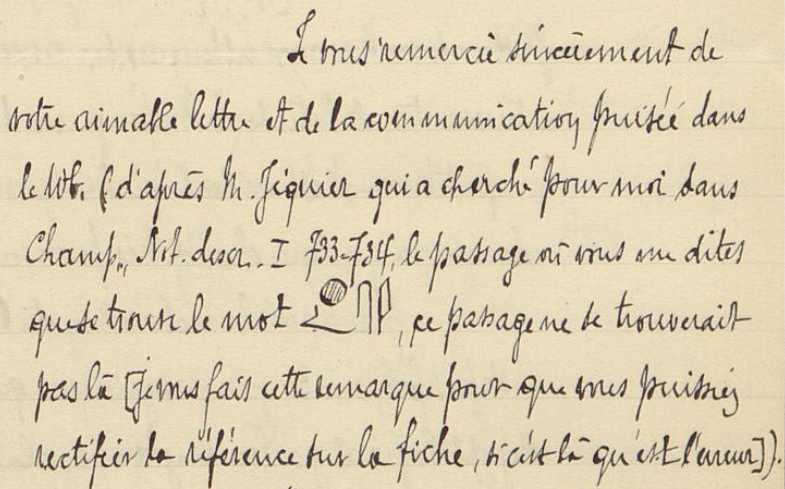 Je vous remercie sincèrement de
votre aimable lettre et de la communication puisée dans
le Wb. (d'après M. Jéquier qui a cherché pour moi dans
Champ., Not. descr. I 733-734, le passage où vous me dites
que se trouve le mot , ce passage ne se trouverait
pas là [je vous fais cette remarque pour que vous puissiez
rectifier la référence sur la fiche, si c'est là qu'est l'erreur]).